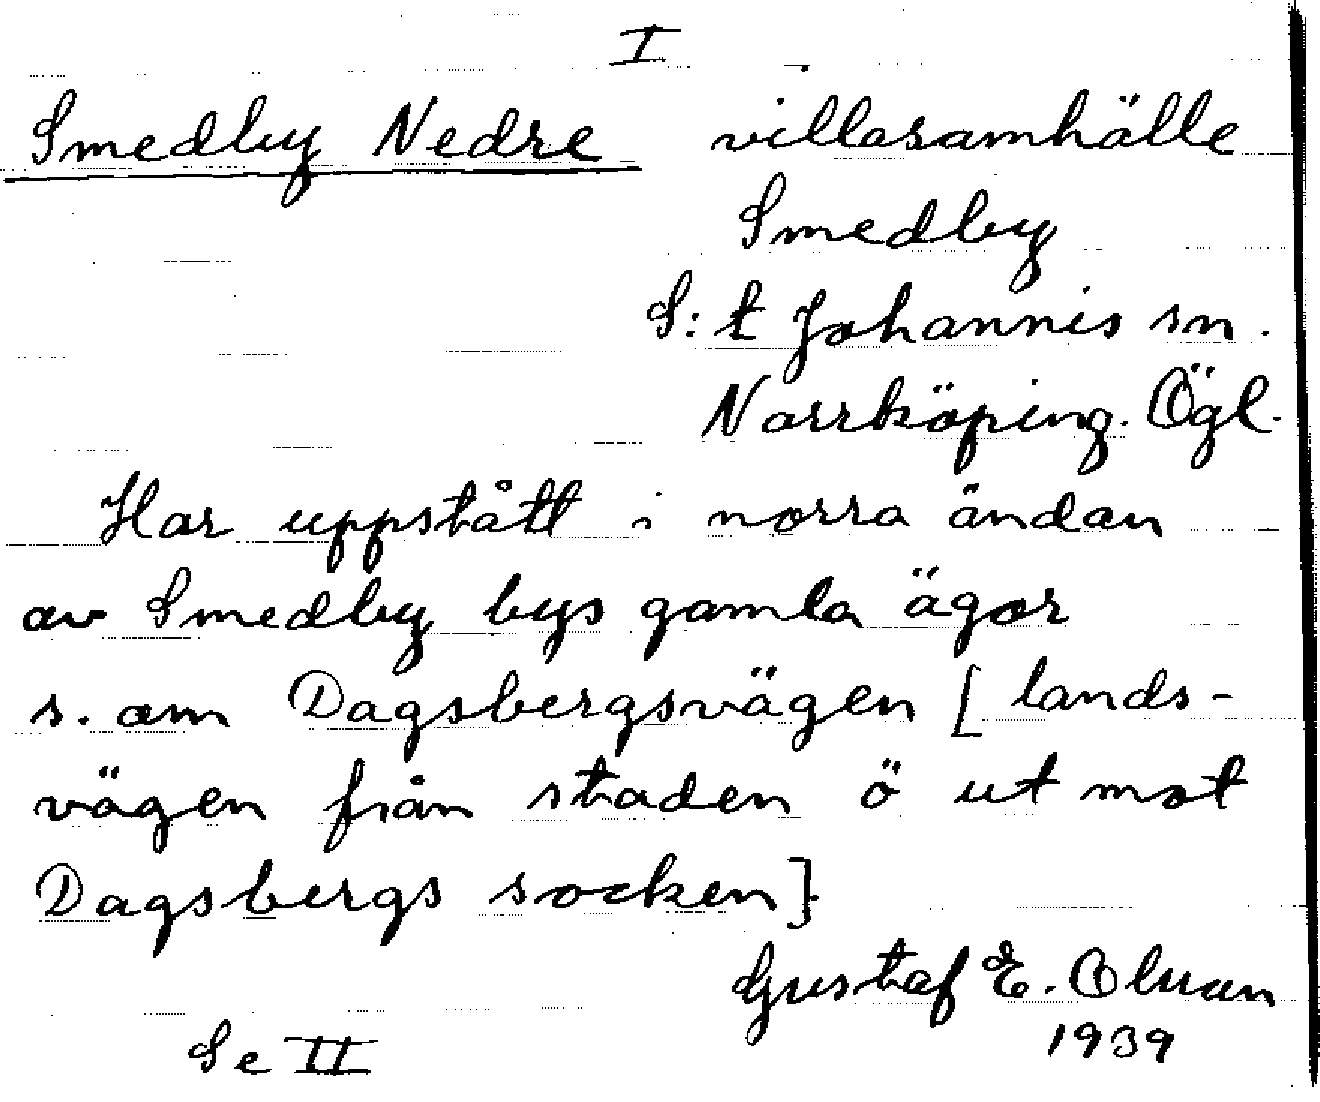 I
Smedby Nedre villasamhälle
Smedby
S:t Johannis sn.
Norrköping. Ögl.
Har uppstått i norra ändan
av Smedby bys gamla ägor
s. om Dagsbergsvägen [lands-
vägen från staden ö ut mot
Dagsbergs socken]
Gustaf E.
1939
Se II